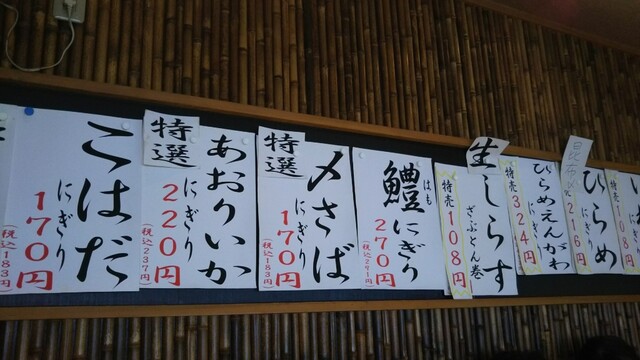 こはだ
にぎり
170円
(税込183円)
特選
あおりいか
にぎり
220円
(税込237円)
特選
〆さば
にぎり
170円
(税込183円)
鱧にぎり
はも
270円
(税込291円)
生しらす
ざぶとん巻
特売108円
ひらめえんがわ
にぎり
特売324円
ひらめ
にぎり
216円
108円